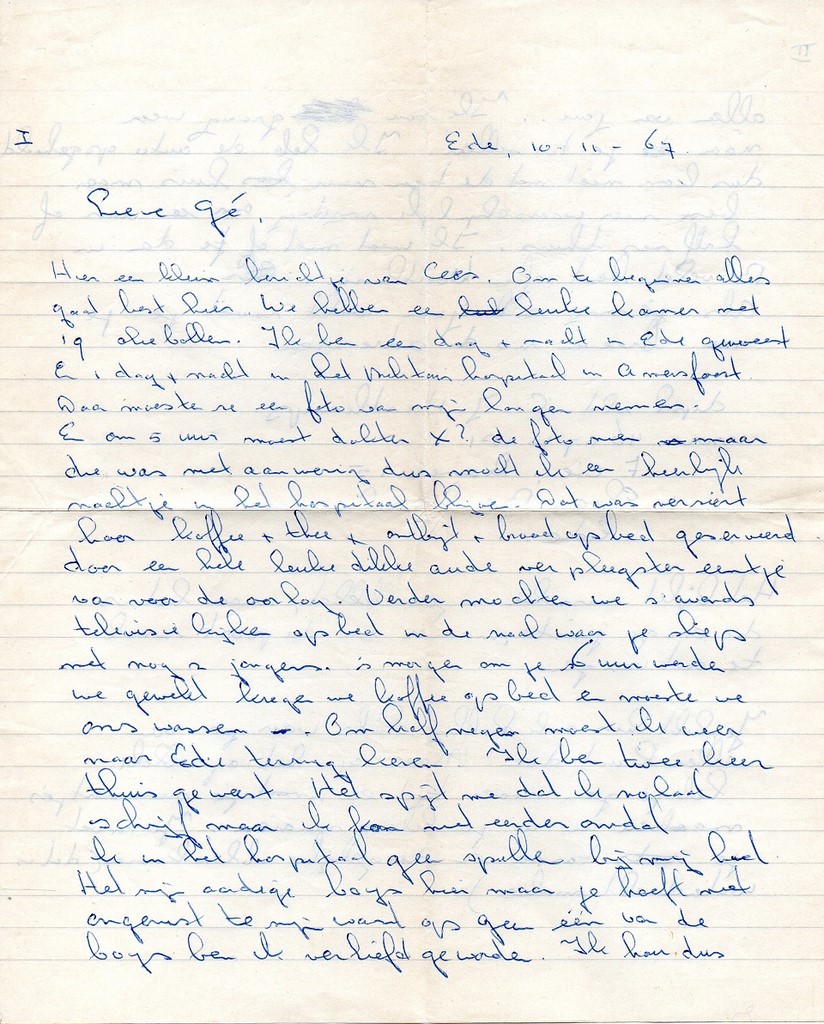 II
I
Ede, 10-11-67.
Lieve Gé,
Hier een klein berichtje van Cees. Om te beginnen alles
gaat best hier. We hebben een leuke kamer met
19 oliebollen. Ik ben een dag + nacht in Ede geweest
En 1 dag + nacht in het Militair hospitaal in Amersfoort.
Daar moeste ze een foto van mijn longen nemen.
En om 5 uur moest dokter X? de foto zien maar
die was niet aanwezig dus mocht ik een heerlijk
nachtje in het hospitaal blijven. Dat was versiert
hoor koffie + thee + ontbijt + brood op bed geserveerd.
door een hele leuke dikke oude verpleegster eentje
van voor de oorlog. Verder mochten we s'avonds
televisie kijken op bed in de zaal waar je sliep
met nog 2 jongens. 's morgen om je 6 uur werde
we gewekt kregen we koffie op bed en moeste we
ons wassen. Om half negen moest ik weer
naar Ede terrug keren. Ik ben twee keer
thuis geweest Het spijt me dat ik zo laat
schrijf maar ik kon niet eerder omdat
ik in het hospitaal geen spullen bij mij had.
Het zijn aardige boys hier maar je hoeft niet
ongerust te zijn want op geen één van de
boys ben ik verliefd geworden. Ik hou dus